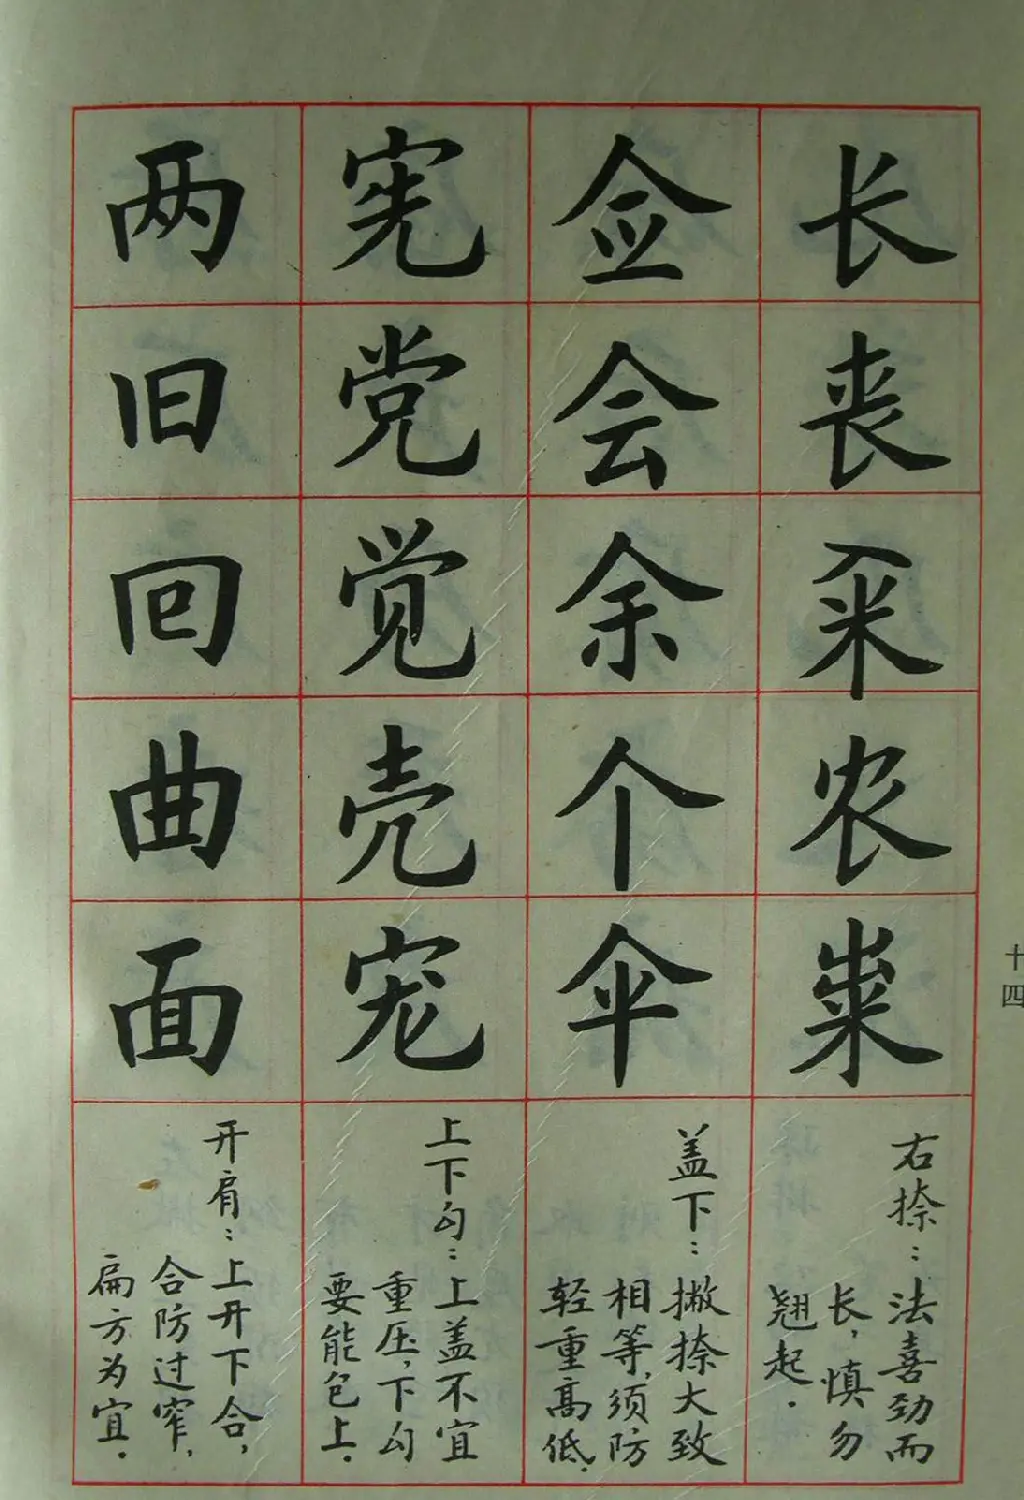 长丧籴农粜
右捺：法喜劲而
长，慎勿
翘起．
佥会余个伞
盖下：撇捺大致
相等，须防
轻重高低．
宪党觉壳宠
上下勾：上盖不宜
重压，下勾
要能包上．
两旧回曲面
开肩：上开下合，
合防过窄，
扁方为宜．
十四